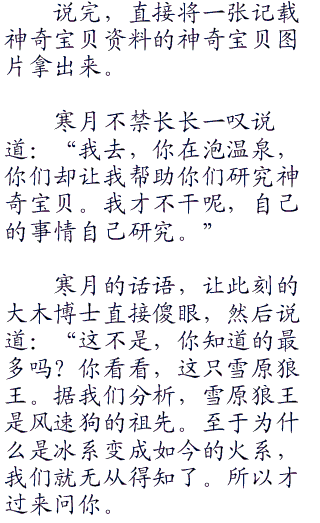 说完，直接将一张记载
神奇宝贝资料的神奇宝贝图
片拿出来。
寒月不禁长长一叹说
道：“我去，你在泡温泉，
你们却让我帮助你们研究神
奇宝贝。我才不干呢，自己
的事情自己研究。”
寒月的话语，让此刻的
大木博士直接傻眼，然后说
道：“这不是，你知道的最
多吗？你看看，这只雪原狼
王。据我们分析，雪原狼王
是风速狗的祖先。至于为什
么是冰系变成如今的火系，
我们就无从得知了。所以才
过来问你。